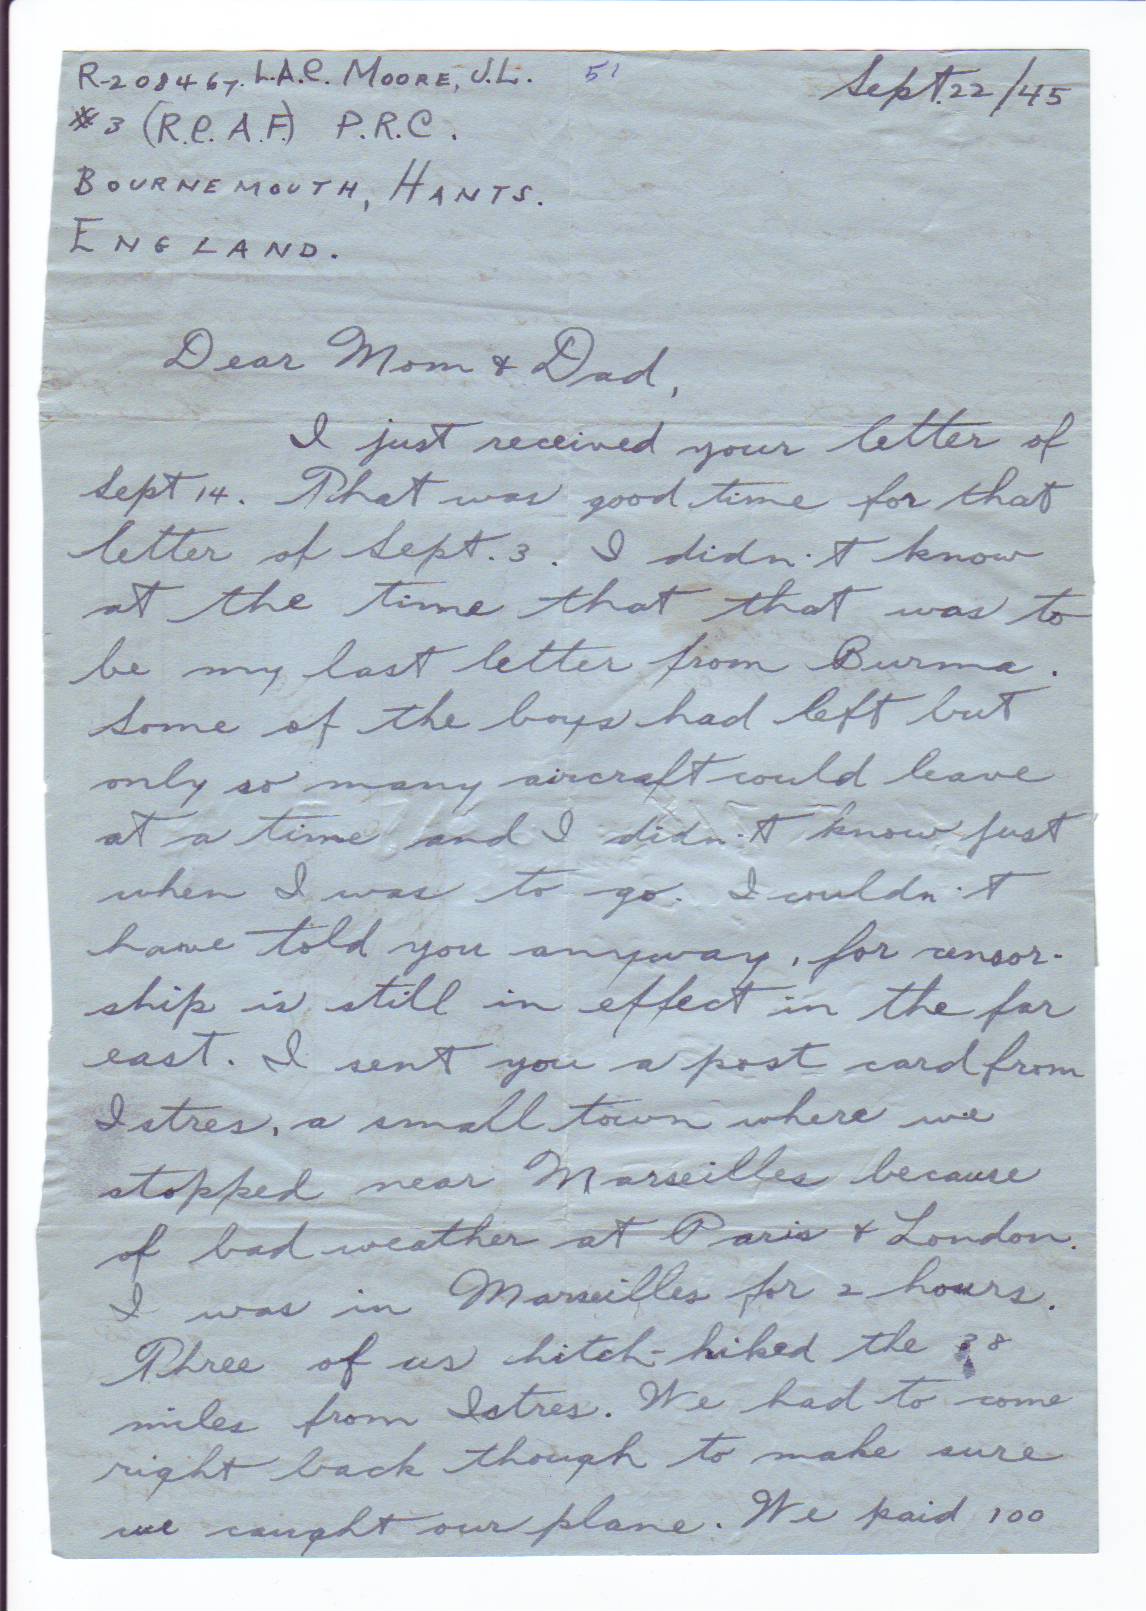 R-208467. L.A.C. MOORE, J.L. 51 Sept. 22/45
#3 (R.C.A.F.) P.R.C.
BOURNEMOUTH, HANTS.
ENGLAND.
Dear Mom & Dad,
I just received your letter of
Sept 14. That was good time for that
letter of Sept. 3. I didn't know
at the time that that was to
be my last letter from Burma.
Some of the boys had left but
only so many aircraft could leave
at a time and I didn't know just
when I was to go. I couldn't
have told you anyway, for censor-
ship is still in effect in the far
east. I sent you a post card from
Istres, a small town where we
stopped near Marseilles because
of bad weather at Paris & London.
I was in Marseilles for 2 hours.
Three of us hitch-hiked the 38
miles from Istres. We had to come
right back though to make sure
we caught our plane. We paid 100